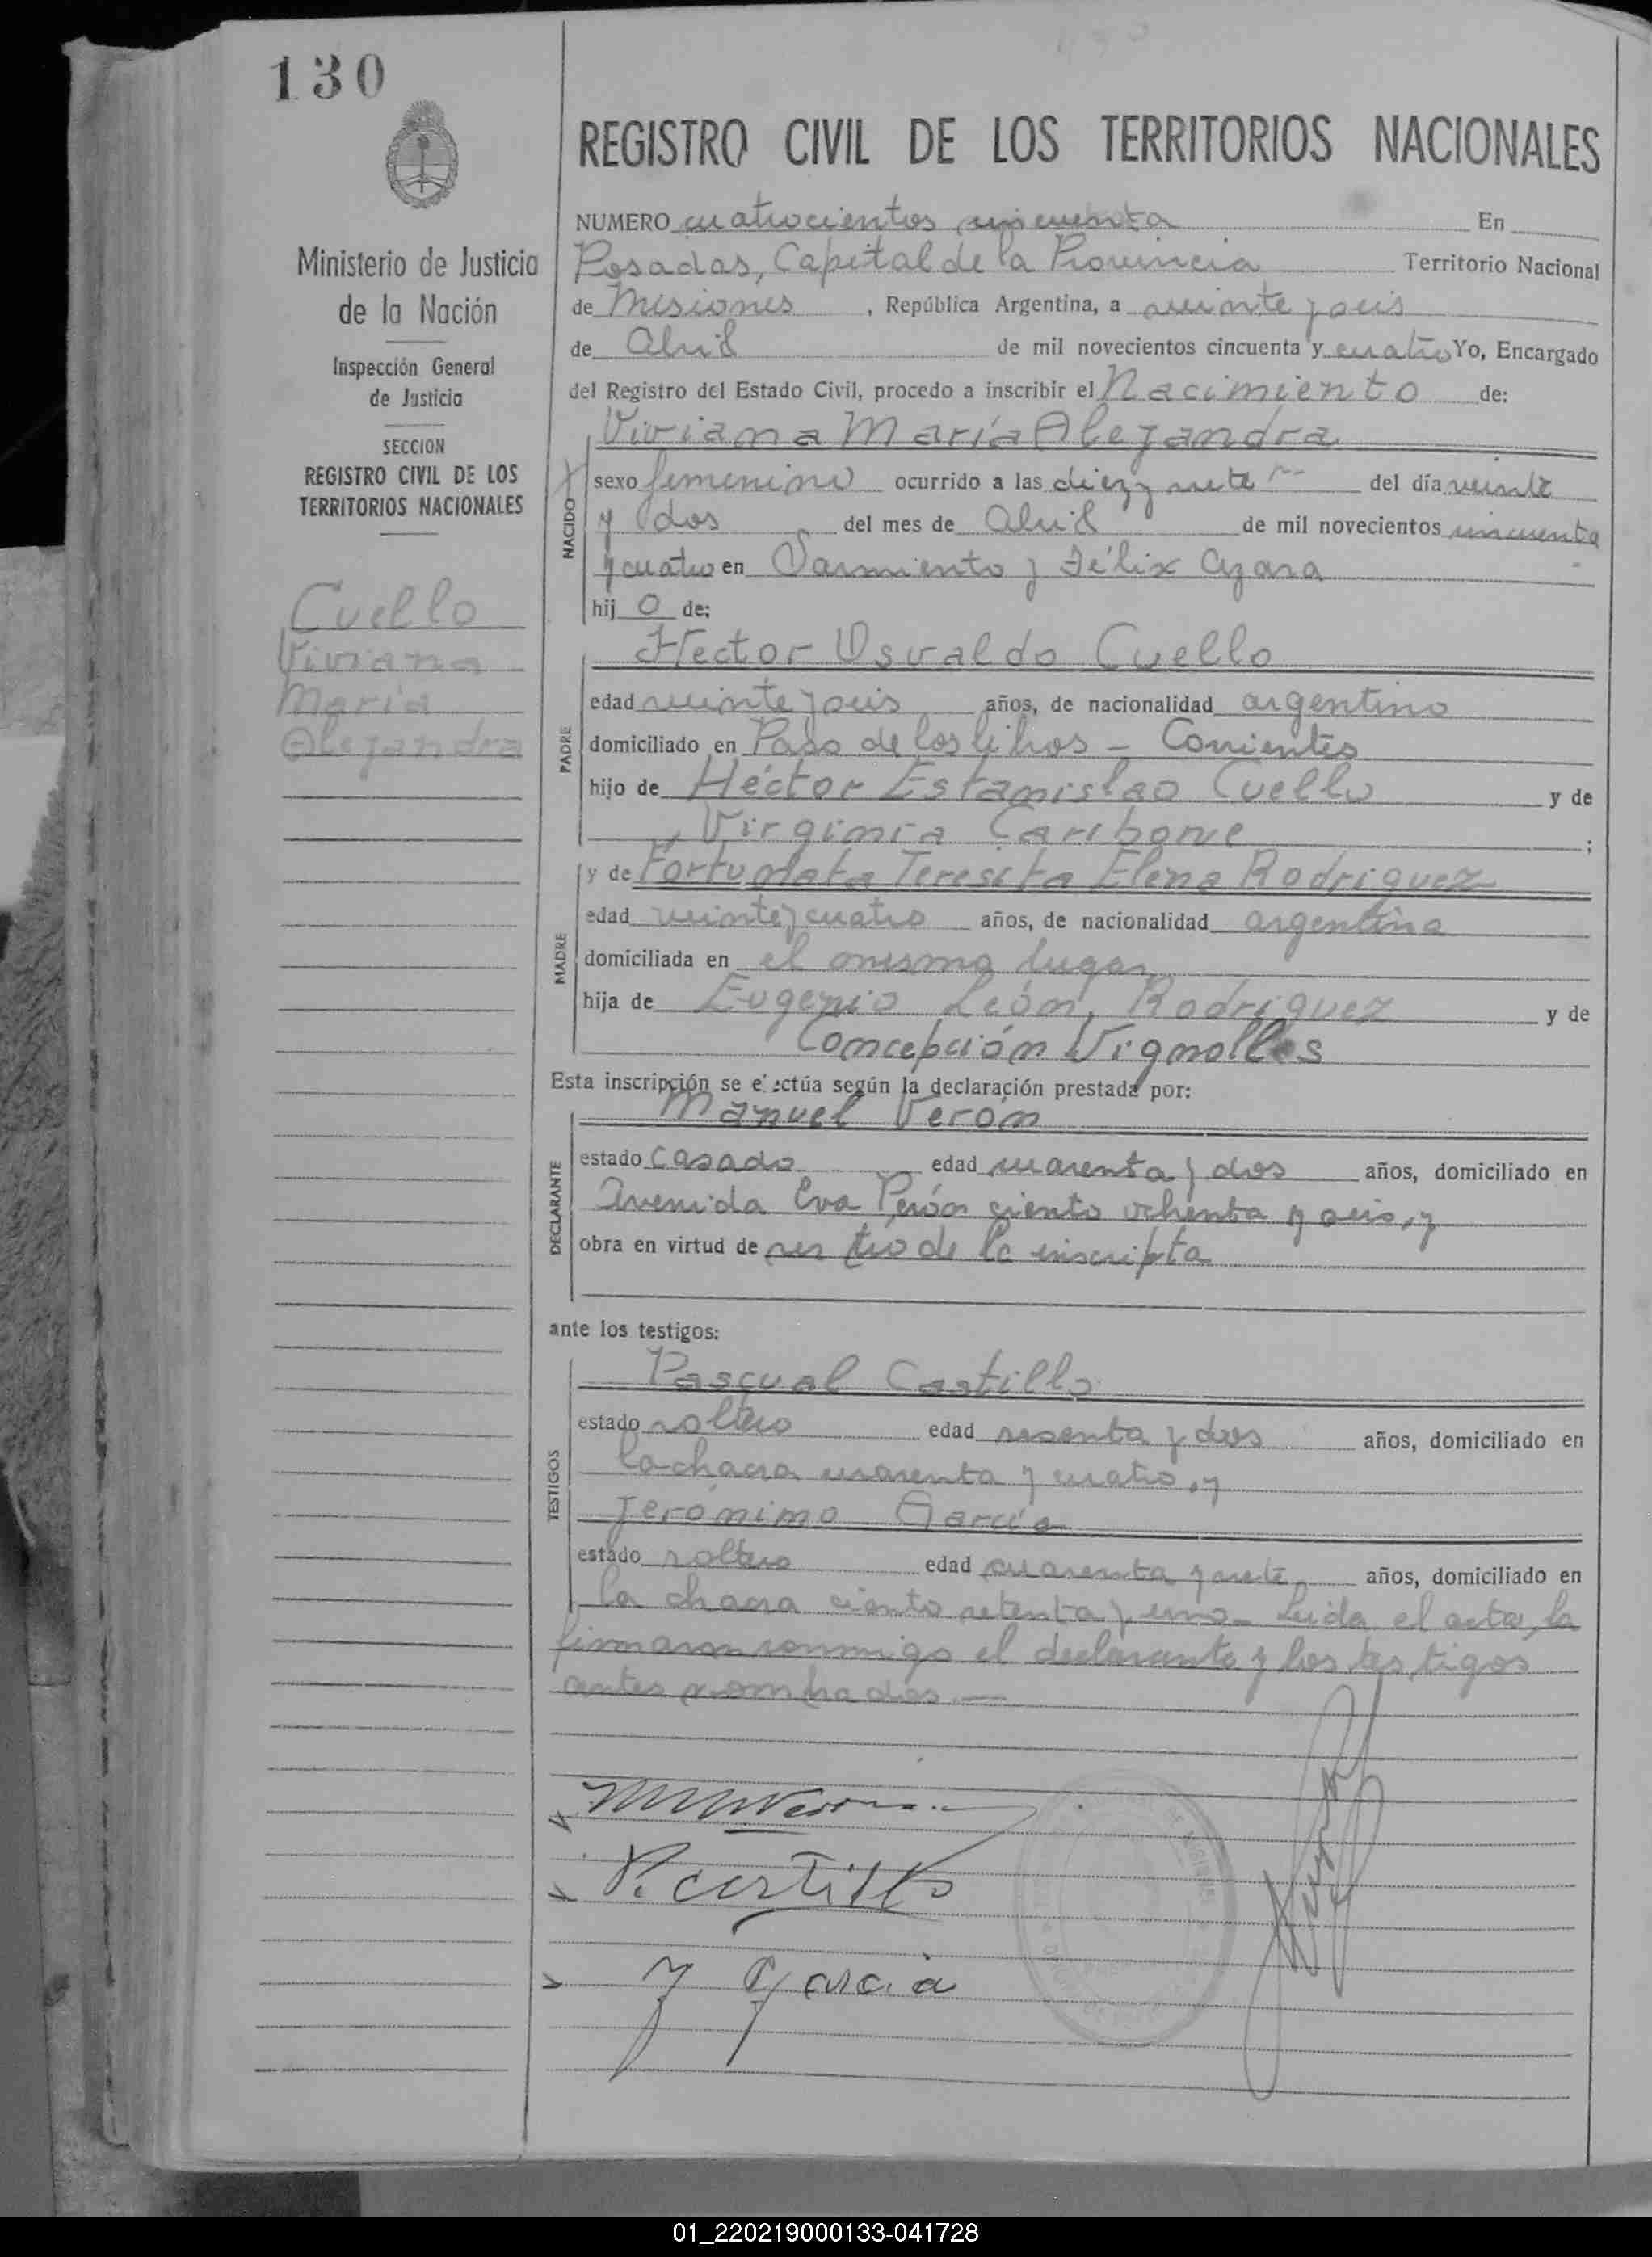 130
REGISTRO CIVIL DE LOS TERRITORIOS NACIONALES
Ministerio de Justicia
de la Nación
Inspección General
de Justicia
SECCION
REGISTRO CIVIL DE LOS
TERRITORIOS NACIONALES
Cuello
Viviana
María
Alejandra
NUMERO cuatrocientos cincuenta En
Posadas, Capital de la Provincia Territorio Nacional
de Misiones, República Argentina, a veinte y seis
de Abril de mil novecientos cincuenta y cuatro Yo, Encargado
del Registro del Estado Civil, procedo a inscribir el Nacimiento de:
Viviana María Alejandra
NACIDO
sexo femenino ocurrido a las diez y siete del día veinte
y dos del mes de Abril de mil novecientos cincuenta
y cuatro en Sarmiento y Félix Azara
hijo de:
Hector Osvaldo Cuello
PADRE
edad veinte y seis años, de nacionalidad argentino
domiciliado en Paso de los Libros - Corrientes
hijo de Héctor Estanislao Cuello y de
Virginia Caribone ;
y de Fortunata Teresita Elena Rodriguez
MADRE
edad veinte y cuatro años, de nacionalidad argentina
domiciliada en el mismo lugar
hija de Eugenio León Rodriguez y de
Concepción Vignolles
Esta inscripción se efectúa según la declaración prestada por:
Manuel Verón
DECLARANTE
estado casado edad cuarenta y dos años, domiciliado en
Avenida Eva Perón ciento ochenta y seis, y
obra en virtud de ser tío de la inscripta
ante los testigos:
Pascual Castillo
TESTIGOS
estado soltero edad sesenta y dos años, domiciliado en
la chacra cuarenta y cuatro, y
Jerónimo García
estado soltero edad cuarenta y siete, años, domiciliado en
la chacra ciento setenta y uno - Leida el acta, la
firmaron conmigo el declarante y los testigos
antes nombrados. —
P. Castillo
J Garcia
01_220219000133-041728